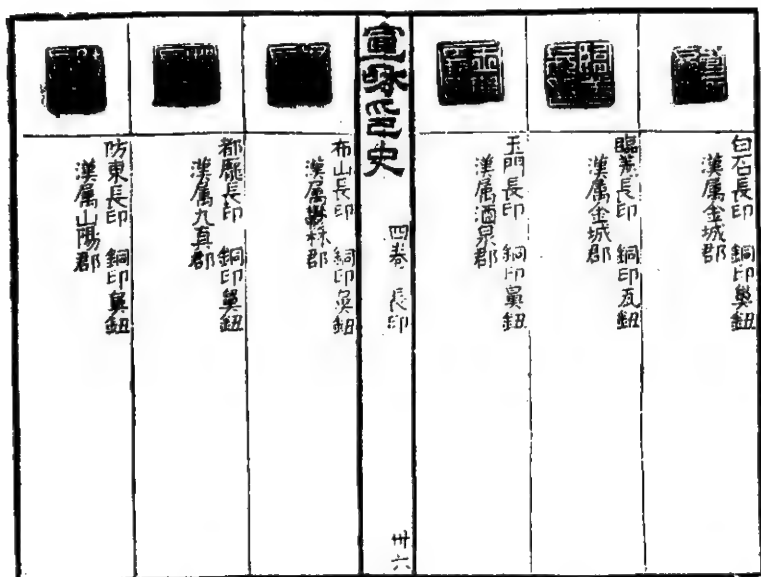 白石長印 銅印鼻鈕
漢属金城郡
臨羌長印 銅印瓦鈕
漢属金城郡
玉門長印 銅印鼻鈕
漢属酒泉郡
宣和印史
四卷 長印
卅六
布山長印 銅印鼻鈕
漢属鬱林郡
都龐長印 銅印鼻鈕
漢属九真郡
防東長印 銅印鼻鈕
漢属山陽郡